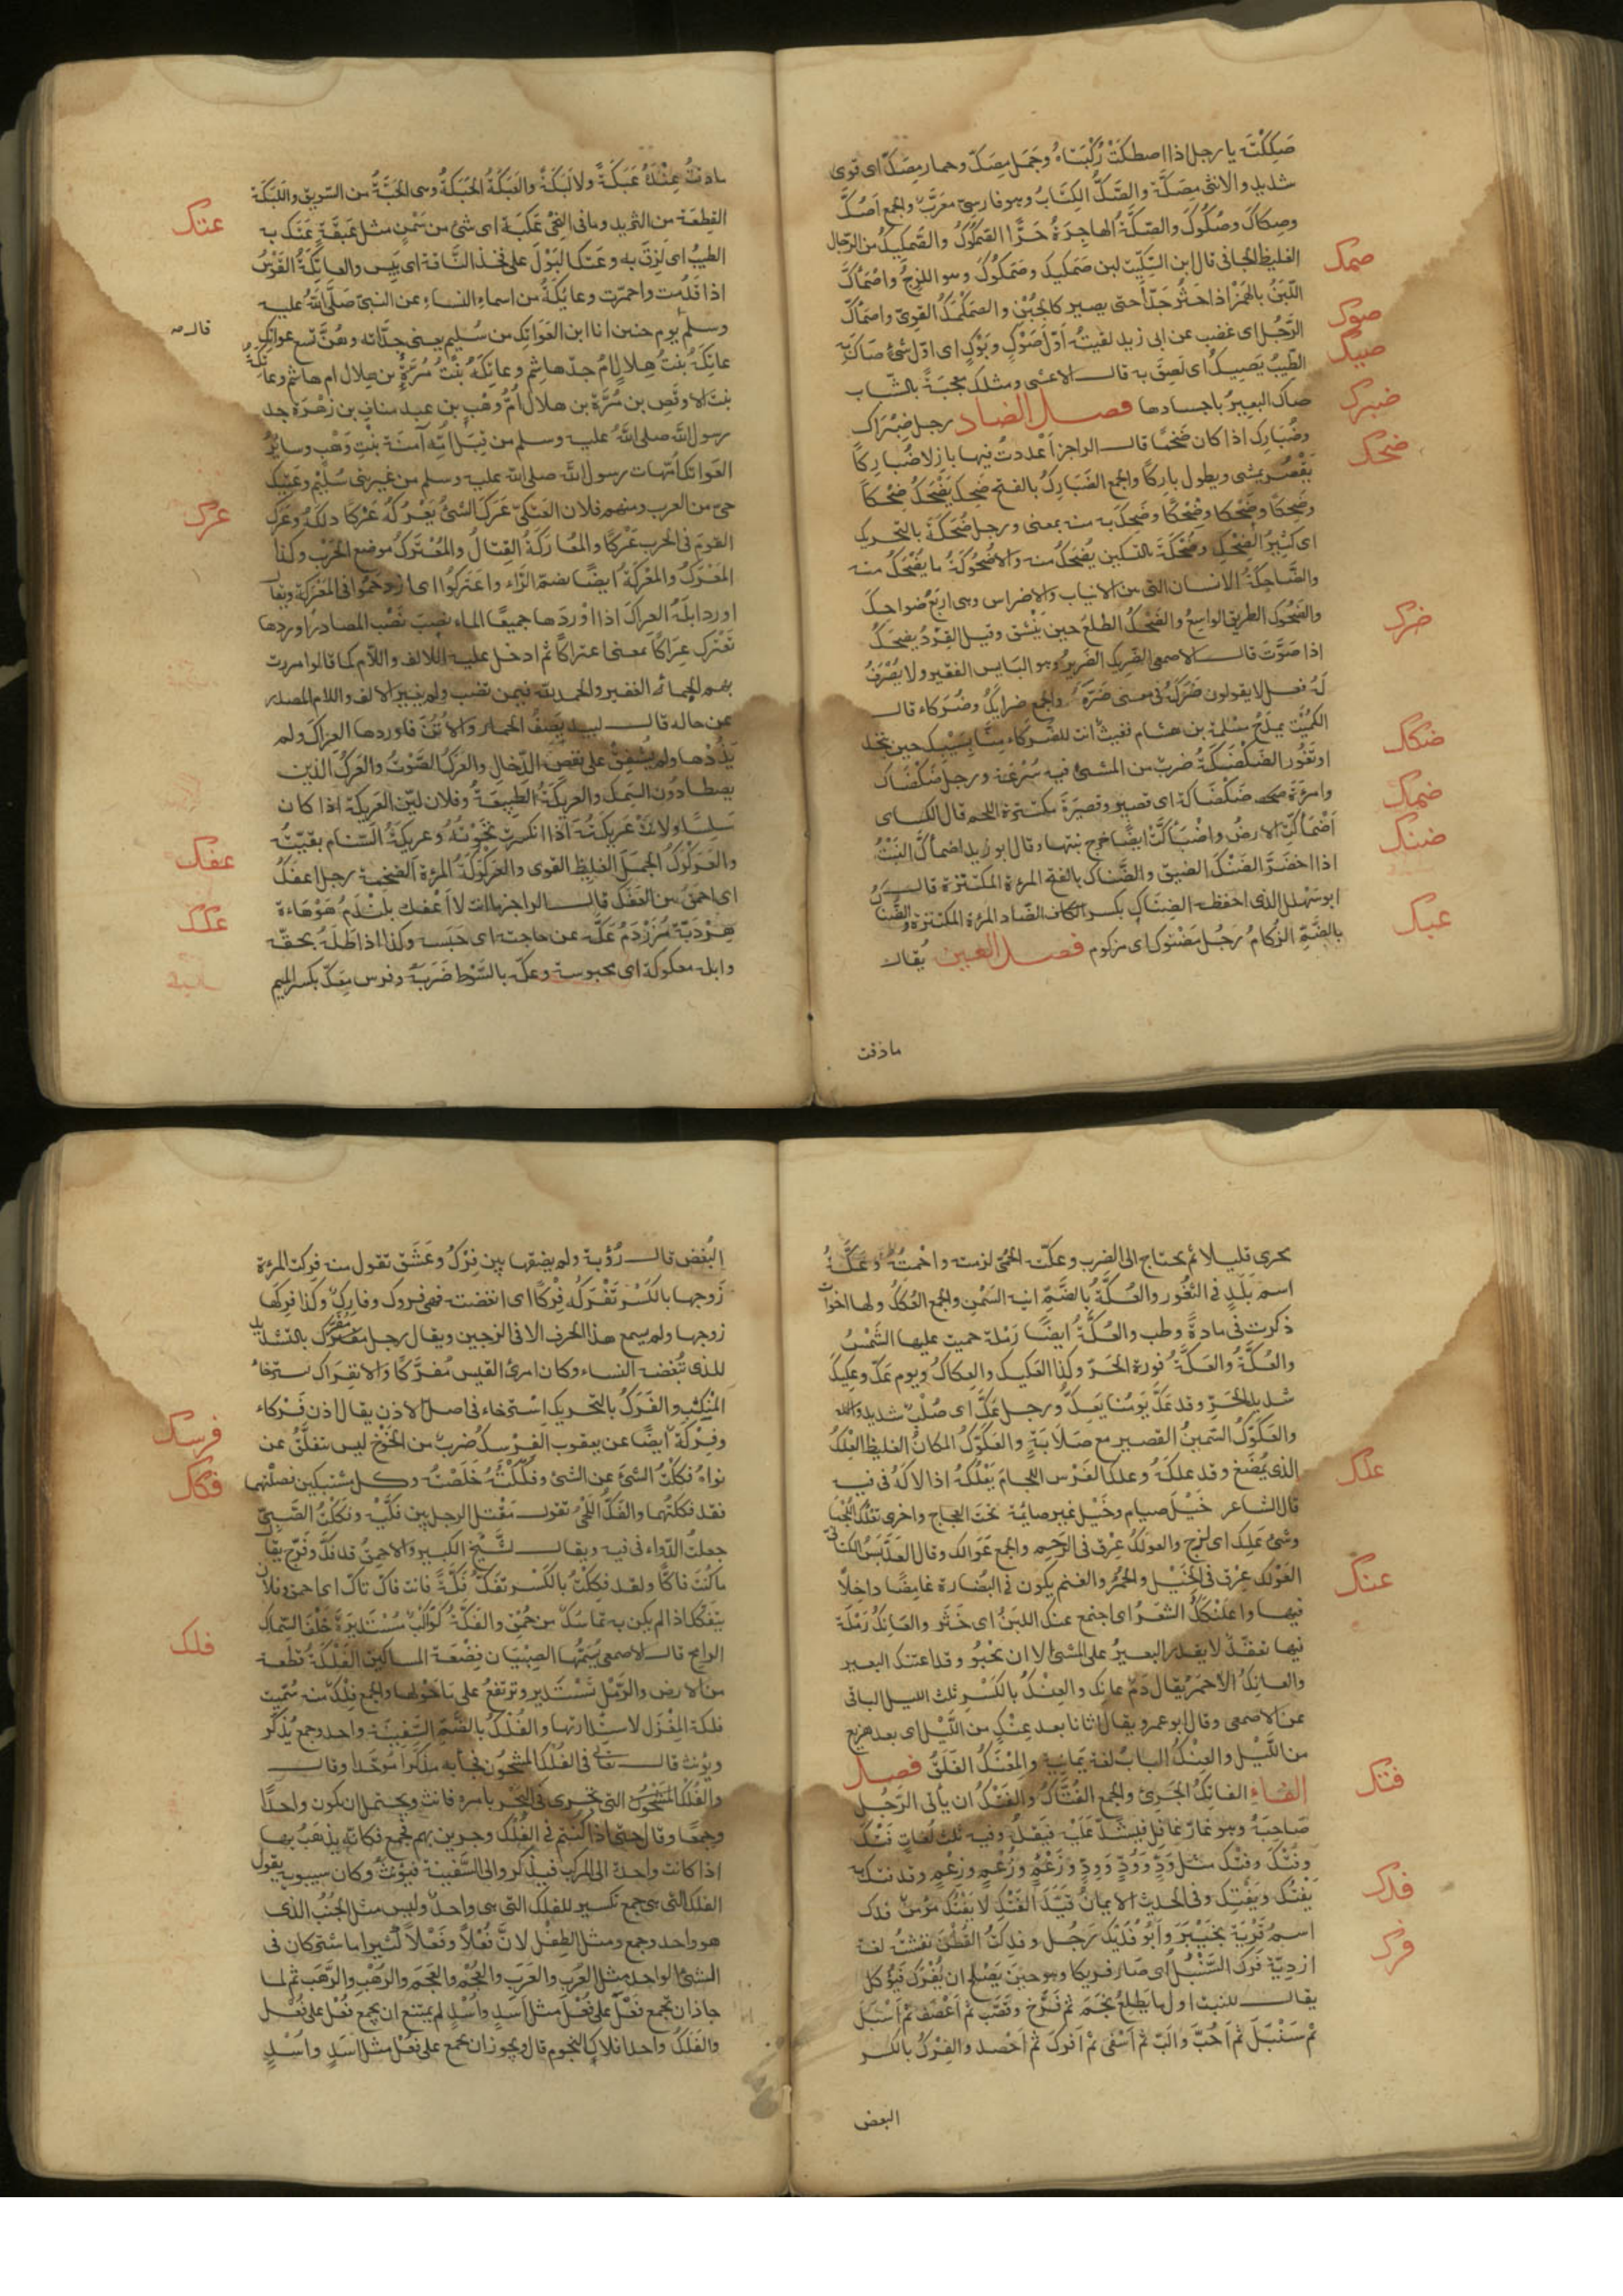 صَكِكْتَ يا رجل اذا اصطكَّتْ رُكْبَتَاهُ وجَمَل مِصَكّ وحمار مِصَكّ اى قوى
شديد والانثى مِصَكَّة والصَّكُّ الكِتَابُ وهو فارسىّ معرّبٌ والجمع اَصُكٌّ
وصِكاكَ وصُكُوكَ والصَّكَّةُ الهاجِرَةُ حَرًّا الصَّمَكُوكُ والصَّمَكِيكُ من الرّجال
صمك
الغليظ الجافى قال ابن السِّكِّيت لبن صَمَكِيكَ وصَمَكُوكَ وهو اللزِجُ واصْمَأَكَّ
اللّبَنُ بالهَمْز اذا خَثُر جَدّاً حتّى يصير كالجُبُنِ والصَّمَكْمَكُ القوىّ واصْمَأَكَّ
صوك
الرَّجُل اى غضب عن ابى زيد لقيتُه اَوَّلَ صَوْكٍ وبَوْكٍ اى اوّل شىء صَاكَ به
صيك
الطِّيبُ يَصِيكُ اى لَصِقَ به قال الاعشى ومثلكِ مُعْجَبَةً بالشّباب
صاكَ العبيرُ باجسادها فصل الضاد رجل ضِبْرَاك
ضبرك
وضُبَارِك اذا كان ضَخْمًا قال الراجز اَعْددتُ فيها بازلا ضُبَارِكًا
ضحك
يَقْصُر يمشى ويطول باركًا والجمع الضَّبَارِكُ بالفتح ضَحِكَ يَضْحَكُ ضِحْكاً
وضَحِكًا وضَحْكا وضِحْكًا وضَحِكَ به منه بمعنى ورجل ضُحَكَةٌ بالتحريك
اى كثيرُ الضَّحْكِ وضُحْكَةٌ بالتسكين يُضْحَكُ منه والاُضْحُوكَةُ ما يُضْحَكُ منه
والضَّاحِكَةُ الانسان التى من الانياب والاضراس وهى اربع ضواحك
والضَّحُوكُ الطريق الواسعُ والضَّحْكُ الطلعُ حينَ يَنْشَق وقيل القِرْدُ يضحكُ
ضرك
اذا صَوَّتَ قال الاصمعى الضَّرِيك الضَّرِيرُ وهو البَايس الفقير ولا يُصْرَفُ
لَهُ فعل لا يقولون ضَرُكَهُ فى معنى ضَرَّهُ والجمع ضرايكُ وضُرَكاء قال
الكُمَيْت يمدحُ مَسْلمة بن هشام فغيثٌ انت للضُّرَكَاء مِنَّا بِسَيْبِكَ حين تُنْجد
ضكك
او تَغُور الضَّكْضَكَةُ ضربٌ من المشى فيه سُرْعَة ورجل ضَكْضَاك
وامرَءة ضَكْضَاكة اى قصيرٌ وقصيرَة مكتنزة اللحم قال الكساى
ضمك
اَضْمَأَكَّتِ الارضُ واضْبَأَكَّتْ ايضًا خرج نبتها وقال ابو زيد اضْمأَكَّ النَّبْتُ
ضنك
اذا اخضَرَّ الضَّنْكُ الضيق والضَّناك بالفتح المرءة المكتنزة قال
ابو سَهْل الذى احفظ الضِنَاكِ بكسر الضّاد المرءة المكتنزة والضُّنَاكُ
بالضَّمِّ الزُكامُ رَجُل مَضْنوكٌ اى مزكوم فصل العين يُقال
عبك
ما ذقت
ما ذقتُ عِنْدَهُ عَبَكَةً ولا لَبَكَةً والعَبَكَةُ الحَبَكَةُ وهى الحَبَّةُ من السَّويق واللَبَكَة
القِطعَة من الثريد وما فى النِّحْى عَبَكَة اى شىء من سَمْنٍ مثل عَبَقَةٍ عَتَكَ به
عتك
الطيبُ اى لَزِقَ به وعَتكا لبَوْلُ على فخذ النَّاقة اى يَبِس والعاتِكَةُ القَوْسُ
اذا قَدُمَت واحمرّت وعاتِكَةُ من اسماءِ النساء عن النبىّ صَلَّى اللهُ عليه
وسلّم يوم حنين انا ابن العَوَاتِكِ من سُلَيم يعنى جدّاته وهُنَّ تسع عواتك
قال ص
عاتكة بنتُ هِلال اُمُّ جدّ هاشِم وعاتكةُ بنتُ مُرَّةَ بن هلال ام هاشم وعاتكةُ
بنت الاوقَص بن مُرَّة بن هلال اُمُّ وهْب بن عبد مناف بن زُهْرة جد
رسول الله صلى الله عليه وسلم من قِبَل اُمِّه آمنَة بنتِ وَهْب وسائِرُ
العَواتك اُمّهات رسول الله صلى الله عليه وسلم من غير بنى سُلَيْم وعَتِيك
حىّ من العرب ومنهم فلان العَتكىّ عَرَكَ الشئَ يَعْرُكُه عَرْكًا دلكَهُ وعَرَكَ
عرك
القومَ فى الحرب عَرْكًا والمُعَارَكَةُ القِتالُ والمُعْتَرَكُ موضع الحَرْب وكذا
المَعْرَكُ والمَعْرَكَةُ ايضًا بضمّ الرَّاء واعتَرَكُوا اى ازدحَمُوا فى المَعْرَكة ويقال
اورد ابلَهُ العراكَ اذا اوْرَدَها جميعًا الماء نصبَ نَصْب المصادر اوردها
تَعْتَرِك عِرَاكًا بمعنى اعتراكًا ثم ادخل عليه الالف واللاّم كما قالوا مررت
بهم الجماء الغفير والحمد لله فيمن نصب ولم يغيّر الالف واللام المصدر
عن حاله قال لبيد يَصِفُ الحمار والاُتُنَ فاوردها العراكَ ولم
يَذُدْها ولم يُشْفِقْ على نَغَصِ الدِّخالِ والعَرَكُ الصَّوْتُ والعَرَكُ الذين
يصطادُون السَّمك والعريكَةُ الطَّبِيعَةُ وفلان ليّن العَريكَة اذا كان
سَلِسًا ولانَتْ عَرِيكتُه اذا انكسَرتْ نَخْوَتُهُ وعريكَةُ السَّنام بقيَّتُهُ
والعَرَكْرَكُ الجَمَل الغليظ القوى والعَرَكْرَكَةُ المرءة الضخمة رجل اعفَكُ
عفك
اى احمق من العَفَك قال الراجز ما انت لا اَعْفك بلَنْدَمٌ هَوْهَاءَة
عكك
هِرْدَبّة مُزَرْدَمٌ عكّهُ عن حاجته اى حبَسَه وكذا اذا طَلَهُ بحقّه
وابل معكوكة اى محبوسة وعكّه بالسَّوْط ضَرَبَهُ وفرس مِعَكّ بكسر الميم
يحرى قليلا ثم يحتاج الى الضرب وعكّته الحُمّى لزمته واحْمَتْهُ وعَكَّةُ
اسم بَلَدٍ فى الثُّغُور والعُكَّةُ بالضَّمِّ انية السَّمْنِ والجمع العُكَك ولها اخوات
ذكرت فى مادةِ وطب والعُكَّةُ ايضًا رَمْلة حميت عليها الشَّمْسُ
والعُكَّةُ والعَكَّةُ فورة الحَرّ وكذا العَكيك والعِكاكُ ويوم عَكّ وعكيكٌ
شديد الحَرِّ وقد عَكَّ يَوْمُنا يَعِكُّ ورجل عَكٌّ اى صُلْبٌ شديد
والعَكَوَّكُ السَّمينُ القصير مع صَلاَبَةٍ والعَكَوَّكُ المكانُ الغليظ العِلْكُ
الذى يُمْضَغُ وقد علكَهُ وعلكَ الفَرَس اللجامَ يَعْلُكُهُ اذا لاكَهُ فى فيه
علك
قال الشاعر خَيْلٌ صيام وخَيْل غير صائِمة تحتَ العجاج واخرى تعلُك اللُّجُمَا
وشئ عَلِك اى لزج والعولكُ عِرْق فى الرَّحِمِ والجمع عَوَالك وقال العَدَبَّسُ الكنانى
العَوْلَك عِرْق فى الخَيْل والحُمُر والغنم يكون فى البُظارة غامضًا داخلاً
عنك
فيها واعلَنْكَكُ الشعَرُ اى اجتمع عَنَك اللبَنُ اى خَثَر والعَانِكُ رَمْلَة
فيها تعَقّدٌ لا يقدر البعيرُ على المشى الا ان يَحْبُو وقد اعتنك البعير
والعانِكُ الاَحمَرُ يقال دَمٌ عانِك والعِنْكُ بالكَسْرِ ثلث الليل الباقى
عن الاصمعى وقال ابو عمرو يقال اتانا بعد عِنْكٍ من اللَّيْل اى بعد هزيع
من اللَّيْل والعِنْكُ البابُ لغة يَمانِية والمِعْنَكُ الغَلَقُ فصل
الفاء الفَاتِكُ الجَرِىُ والجمع الفُتَّاكُ والفَتْكُ ان يأتى الرَّجُل
فتك
صَاحِبَهُ وهو غارٌّ غافِل فيَشُدَّ عَلَيْه فيَقْتلهُ وفيه ثلث لُغَاتٍ فَتْك
وفُتْك وفِتْك مثل وَدٍّ ووُدٍّ ووِدٍّ وزَعْمٍ وزُعْمٍ وزِعْمٍ وقد فتك به
يَفْتُك ويَفْتِك وفى الحديث الايمانُ قَيَّدَ الفَتْكَ لا يَفْتُكُ مؤمِنٌ فدك
فدك
اسمُ قَرْيَة بخَيْبَرَ واَبُو فُدَيْك رَجُل وفدَكتُ القُطْنَ نفشتُه لغة
فرك
ازديّة فَرَك السُّنْبُلُ اى صَارَ فريكا وهو حينَ يَصْلُح ان يُفْرَكَ فيُؤكل
يقال للنبت اول ما يَطْلعُ نَجَمَ ثم فَرَّخَ وقَصَّبَ ثم اَعْصَفَ ثم اَسْبَلَ
ثم سَنْبَلَ ثم اَحَبَّ والَبَّ ثم اَسْفَى ثم اَفرَكَ ثم اَحْصد والفِرْكُ بالكسر
البغض
البُغض قال رُؤبة ولم يضِعْها بين فِرْكٍ وعَشَق تقول منه فركت المرءة
زَوجها بالكَسْر تَفْرَكُه فِرْكًا اى ابغضته فهى فروك وفارِك وكذا فَرِكَها
زوجها ولم يسمع هذا الحرف الا فى الزوجين ويقال رجل مُفَرَّك بالتشديد
للذى تُبْغضه النساء وكان امرئ القيس مُفَرَّكًا والانفِرَاك استرخاء
المَنْكِب والفَرَكُ بالتحريك اِسْترخاء فى اصل الاذن يقال اذن فَرْكاء
وفَرِكَةٌ ايضًا عن يعقوب الفِرْسِكُ ضربٌ من الخَوْخ ليس يتفلَّق عن
فرسك
نواهُ فكَكْتُ الشئَ عن الشئ وفَكَكْتُهُ خَلَصْتُه وكل مشتبكين فصَلْتَهما
فكك
فقد فككتَهُما والفَكّ اللَّحْىُ تقول مَقْتل الرجل بين فَكَّيْه وفَكَكْتُ الصَّبِىَّ
جعلتُ الدّواء فى فيه ويقال للشَّيْخ الكبير والاحمق قد فَكَّ وفَرَّج يقال
ما كُنْتَ فاكًّا ولقد فكِكْتَ بالكَسْر تفَكُّ فَكَّةً فانت فاكّ تاكّ اى احمق وفلان
يتفَكَّك اذا لم يكن به تماسُكٌ من حُمْق والفَكَّةُ كواكِبُ مُسْتَدِيرَة خَلْفَ السِّماك
فلك
الرامح قال الاصمعى يُسَمِّيها الصِبْيَان قصْعَة المساكين الفَلْكَةُ قطعة
من الارض والرَّمْل تَسْتَدير وترتفعُ على مَا حَوْلها والجمع فِلْكٌ منه سُمِّيت
فلكة المِغْزَل لاستدارتها والفُلْكُ بالضَّمِّ السَّفِينَة واحد وجمع يُذكّر
ويؤنث قال تعالى فى الفُلْكِ المَشحُون فجأ به مذكَّرا مُوَحّدًا وقال
والفُلْك التى تجرى فى البَحْر بأمره فانّث ويحتمل ان يكون واحدًا
وجمعًا وقال حتى اذا كنْتم فى الفُلْك وجرين بهم فجمع فكانّه يذهَبُ بها
اذا كانت واحدة الى المركَب فيذكّر والى السَّفِينة فيُؤنثُ وكان سيبويه يقول
الفلك التى هى جمع تكسير للفلك التى هى واحدٌ وليس مثل الجُنُب الذى
هو واحد وجمع ومثل الطِفْل لانَّ فُعْلاً وفَعَلاً كثيرا ما اشتركان فى
الشئ الواحد مثل العُرْب والعَرَب والعُجْم والعَجَم والرُّهْب والرَّهَب ثم لمّا
جاز ان تجمع فَعَلٌ على فُعْل مثل اَسَدٍ واُسْدٍ لم يمتنع ان يجمع فُعْل على فُعْل
والفَلَكُ واحد افلاك النجوم قال ويجوز ان يجمع على فُعْل مثل اَسَدٍ واُسْدٍ